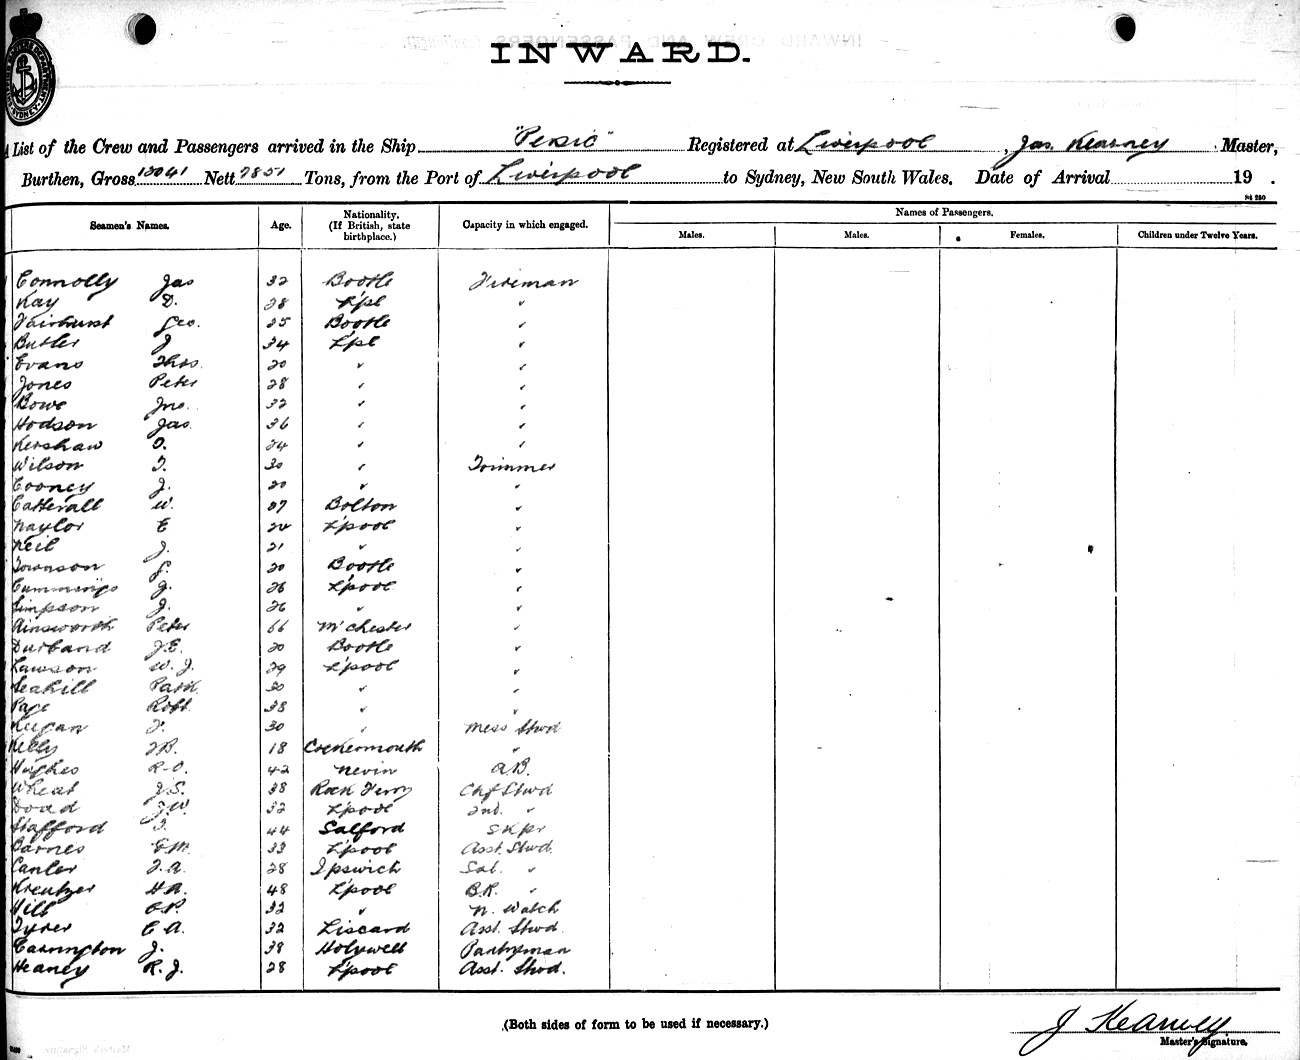 INWARD.
List of the Crew and Passengers arrived in the Ship "Persic" Registered at Liverpool, Jas. Kearney Master,
Burthen, Gross 12041 Nett 7851 Tons, from the Port of Liverpool to Sydney, New South Wales. Date of Arrival 19 .
St 250
Seamen's Names. Age. Nationality. (If British, state birthplace.) Capacity in which engaged. Names of Passengers.
Males. Males. Females. Children under Twelve Years.
Connolly Jas 32 Bootle Fireman
Kay D. 28 L'pl "
Fairhurst Geo. 25 Bootle "
Butler J 34 L'pl "
Evans Thos. 20 " "
Jones Peter 28 " "
Bowe Jno. 32 " "
Hodson Jas 36 " "
Kershaw O. 24 " "
Wilson T. 30 " Trimmer
Cooney J. 20 " "
Catterall W. 27 Bolton "
Naylor E 24 L'pool "
Neil J. 21 " "
Townson J. 20 Bootle "
Cummings J. 26 L'pool "
Simpson J. 26 " "
Ainsworth Peter 66 M'chester "
Durband J.E. 20 Bootle "
Lawson W.J. 29 L'pool "
Seahill Patk. 30 " "
Page Robt 38 " "
Keegan J. 30 " Mess Stwd
Kelly J.B. 18 Cockermouth "
Hughes R.O. 42 Nevin A.B.
Wheat J.S. 38 Rock Ferry Chf Stwd
Dodd J.W. 32 L'pool 2nd. "
Stafford T. 44 Salford S Kpr
Barnes G.M. 33 L'pool Asst. Stwd.
Canler F.A. 28 Ipswich Sal. "
Kreutzer H.A. 48 L'pool B.R. "
Hill C.P. 32 " N. Watch
Tyrer E.A. 32 Liscard Asst. Stwd.
Carrington J. 38 Holywell Pantryman
Heaney R.J. 28 L'pool Asst. Stwd.
(Both sides of form to be used if necessary.)
J Kearney
Master's Signature.